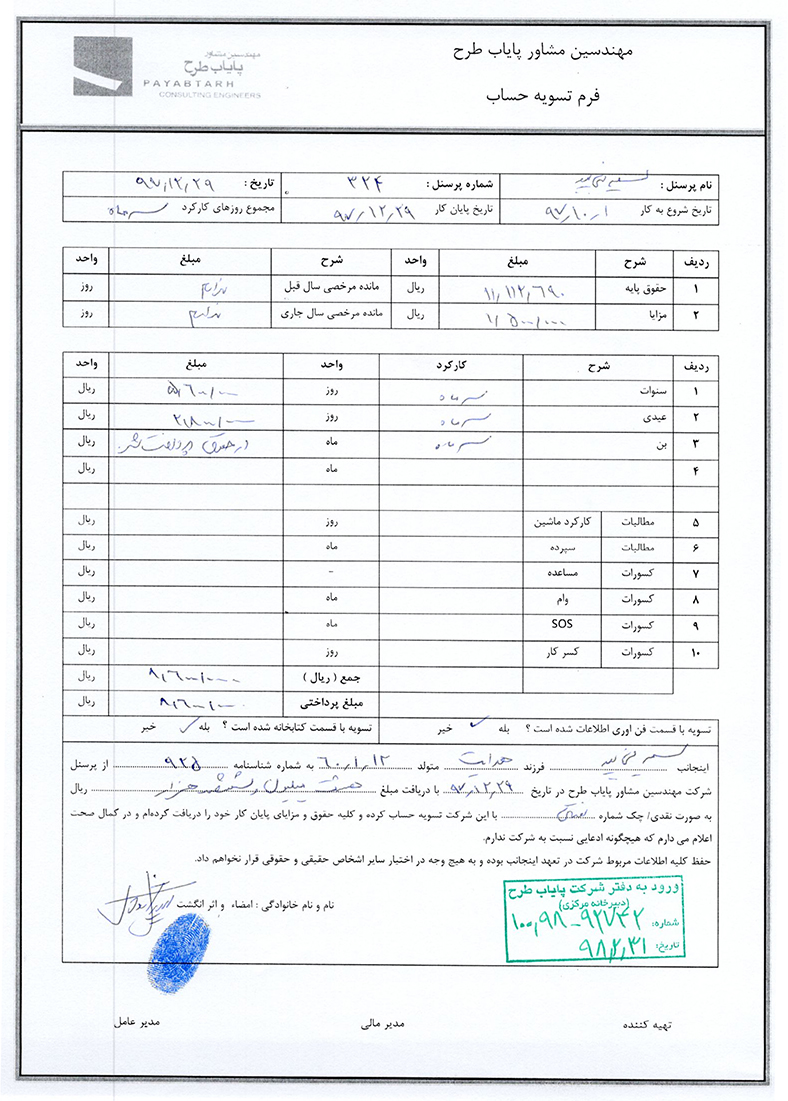 مهندسین مشاور
پایاب طرح
PAYABTARH
CONSULTING ENGINEERS
مهندسین مشاور پایاب طرح
فرم تسویه حساب
نام پرسنل : شماره پرسنل : ۳۲۴ تاریخ : ۹۷,۱۲,۲۹
تاریخ شروع به کار ۹۷,۱۰,۱ تاریخ پایان کار ۹۷,۱۲,۲۹ مجموع روزهای کارکرد سه ماه
ردیف شرح مبلغ واحد شرح مبلغ واحد
۱ حقوق پایه ۱۱,۱۱۲,۶۹۰ ریال مانده مرخصی سال قبل ندارم روز
۲ مزایا ۱,۵۰۰,۰۰۰ ریال مانده مرخصی سال جاری ندارم روز
ردیف شرح کارکرد واحد مبلغ واحد
۱ سنوات سه ماه روز ۵,۶۰۰,۰۰۰ ریال
۲ عیدی سه ماه روز ۲,۸۰۰,۰۰۰ ریال
۳ بن سه ماه ماه در حقوق پرداخت شد ریال
۴ ماه ریال
۵ مطالبات کارکرد ماشین روز ریال
۶ مطالبات سپرده ماه ریال
۷ کسورات مساعده - ریال
۸ کسورات وام ماه ریال
۹ کسورات SOS ماه ریال
۱۰ کسورات کسر کار روز ریال
جمع ( ریال ) ۸,۶۰۰,۰۰۰ ریال
مبلغ پرداختی ۸,۶۰۰,۰۰۰ ریال
تسویه با قسمت فن اوری اطلاعات شده است ؟ بله ✓ خیر تسویه با قسمت کتابخانه شده است ؟ بله ✓ خیر
اینجانب فرزند هدایت متولد ۶۰,۱,۱۲ به شماره شناسنامه ۹۲۵ از پرسنل
شرکت مهندسین مشاور پایاب طرح در تاریخ ۹۷,۱۲,۲۹ با دریافت مبلغ هشت میلیون و ششصد هزار ریال
به صورت نقدی/ چک شماره با این شرکت تسویه حساب کرده و کلیه حقوق و مزایای پایان کار خود را دریافت کرده‌ام و در کمال صحت
اعلام می دارم که هیچگونه ادعایی نسبت به شرکت ندارم.
حفظ کلیه اطلاعات مربوط شرکت در تعهد اینجانب بوده و به هیچ وجه در اختیار سایر اشخاص حقیقی و حقوقی قرار نخواهم داد.
نام و نام خانوادگی : امضاء و اثر انگشت
ورود به دفتر شرکت پایاب طرح
(دبیرخانه مرکزی)
شماره: ۱۰۰,۹۸-۹۲۷۳۲
تاریخ: ۹۸,۲,۳۱
تهیه کننده مدیر مالی مدیر عامل